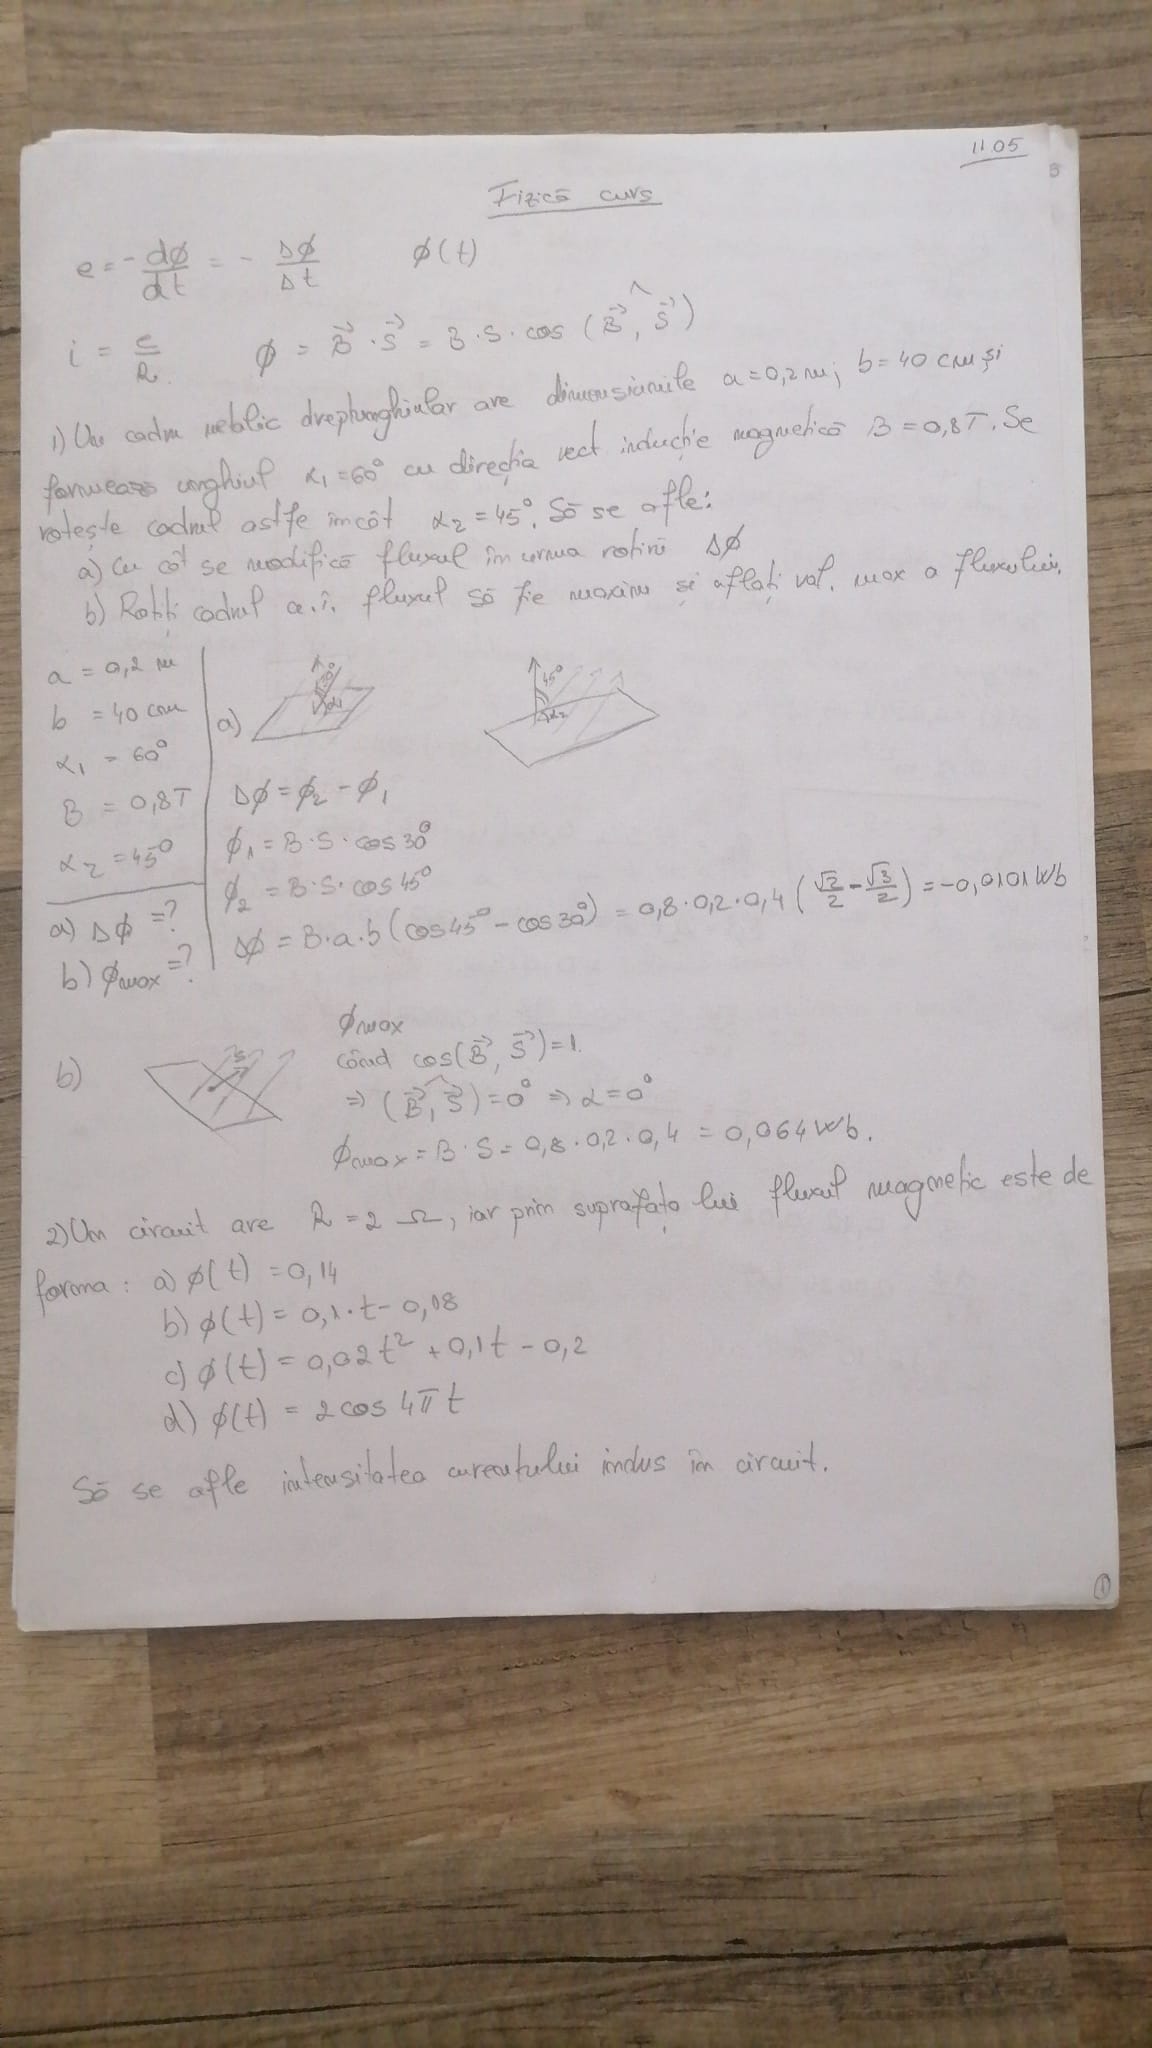 11.05
Fizică curs
e = - dϕ/dt = - Δϕ/Δt ϕ(t)
i = e/R ϕ = B⃗ · S⃗ = B·S·cos (B⃗, S⃗)
1) Un cadru metalic dreptunghiular are dimensiunile a = 0,2 m; b = 40 cm și
formează unghiul α₁ = 60° cu direcția vect inducție magnetică B = 0,8 T. Se
rotește cadrul astfe încât α₂ = 45°. Să se afle:
a) Cu cât se modifică fluxul în urma rotirii Δϕ
b) Rotiți cadrul a.î. fluxul să fie maxim și aflați val. max a fluxului.
a = 0,2 m
b = 40 cm
α₁ = 60°
B = 0,8T
α₂ = 45°
a) Δϕ = ?
b) ϕmax = ?
a)
30°
α₁
45°
α₂
Δϕ = ϕ₂ - ϕ₁
ϕ₁ = B·S·cos 30°
ϕ₂ = B·S·cos 45°
Δϕ = B·a·b (cos 45° - cos 30°) = 0,8·0,2·0,4 (√2/2 - √3/2) = -0,0101 Wb
b)
S
ϕmax
când cos(B⃗, S⃗) = 1.
⇒ (B⃗, S⃗) = 0° ⇒ α = 0°
ϕmax = B·S = 0,8·0,2·0,4 = 0,064 Wb.
2) Un circuit are R = 2 Ω, iar prin suprafața lui fluxul magnetic este de
forma: a) ϕ(t) = 0,14
b) ϕ(t) = 0,1·t - 0,08
c) ϕ(t) = 0,02t² + 0,1t - 0,2
d) ϕ(t) = 2 cos 4π t
Să se afle intensitatea curentului indus în circuit.
1